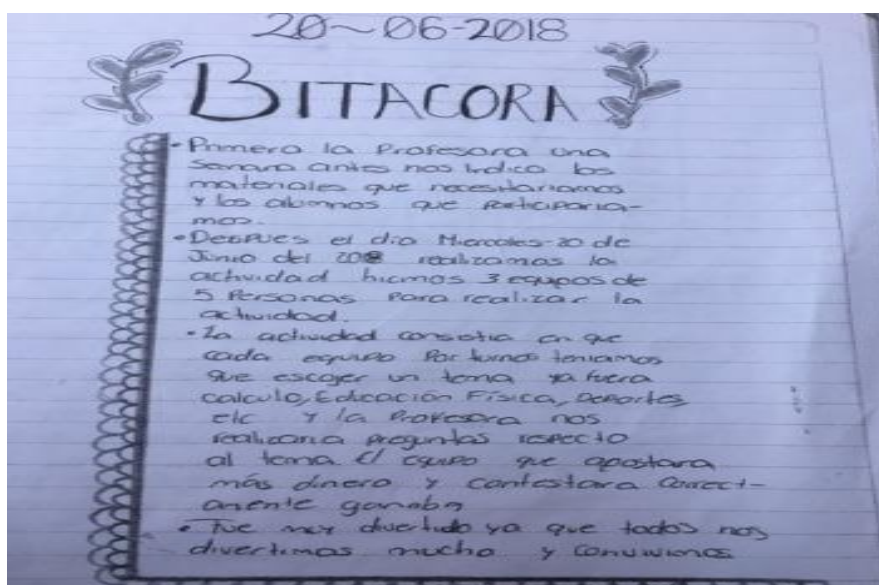 20~06-2018
BITACORA
• Primero la Profesora una
semana antes nos indico los
materiales que necesitariamos
y los alumnos que participaria-
mos.
• Despues el dia Miercoles-20 de
Junio del 2018 realizamos la
actividad hicimos 3 equipos de
5 Personas Para realizar la
actividad.
• La actividad consistia en que
cada equipo Por turnos teniamos
que escojer un tema ya fuera
calculo, Educación Física, Deportes,
etc y la Profesora nos
realizaria preguntas respecto
al tema el equipo que apostara
más dinero y contestara correct-
amente ganaba
• Fue muy divertido ya que todos nos
divertimos mucho y convivimos